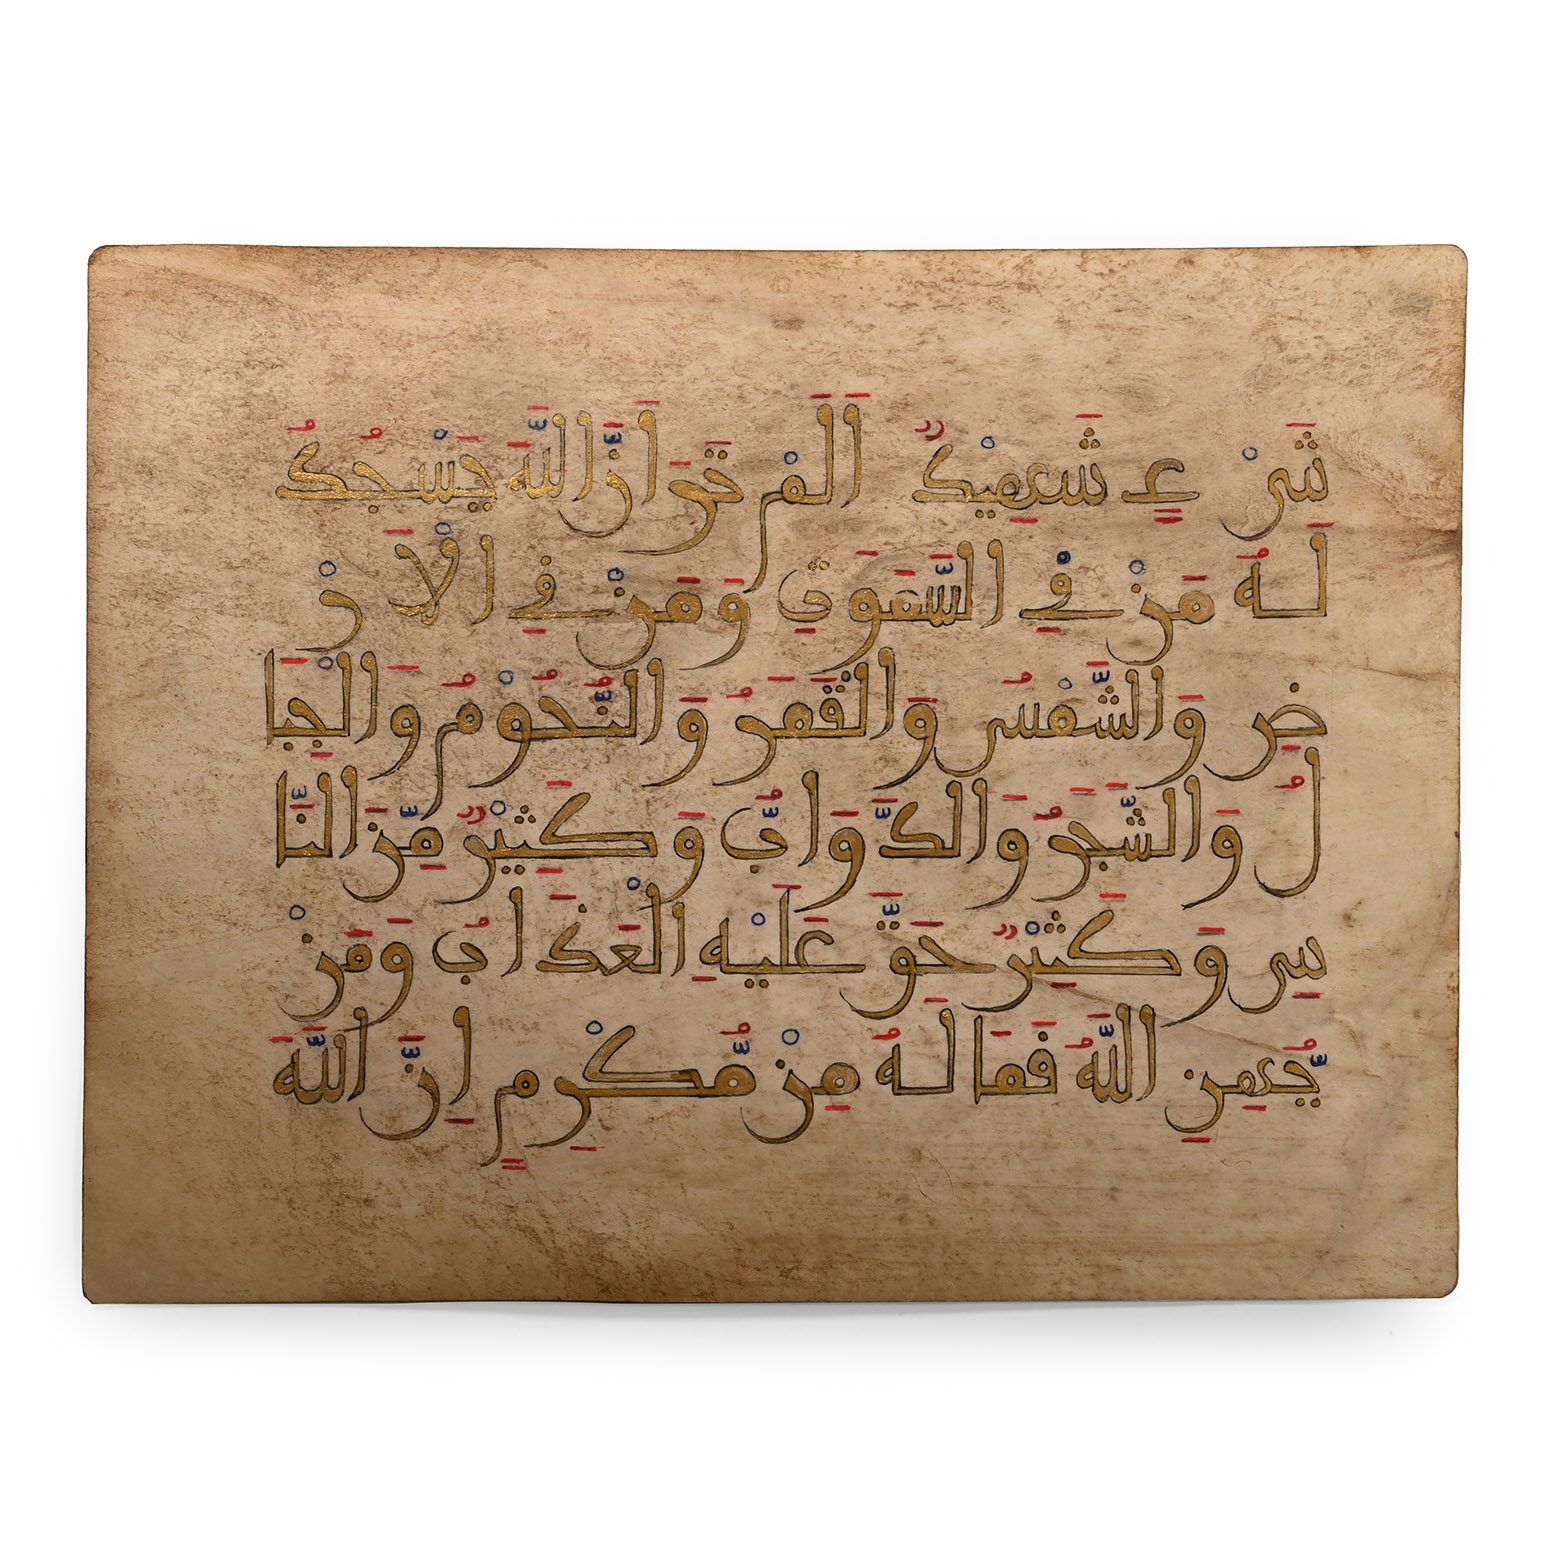 شَيْ ءٍ شَهِيدٌ اَلَمْ تَرَ اَنَّ اللَّهَ يَسْجُدُ
لَهُ مَنْ فِي السَّمَوَتِ وَمَنْ فِي الْاَرْ
ضِ وَالشَّمْسُ وَالْقَمَرُ وَالنُّجُوْمُ وَالْجِبَا
لُ وَالشَّجَرُ وَالدَّوَابُّ وَكَثِيْرٌ مِّنَ النَّا
سِ وَكَثِيْرٌ حَقَّ عَلَيْهِ الْعَذَابُ وَمَنْ
يُّهِنِ اللَّهُ فَمَا لَهُ مِنْ مُّكْرِمٍ اِنَّ اللَّهَ